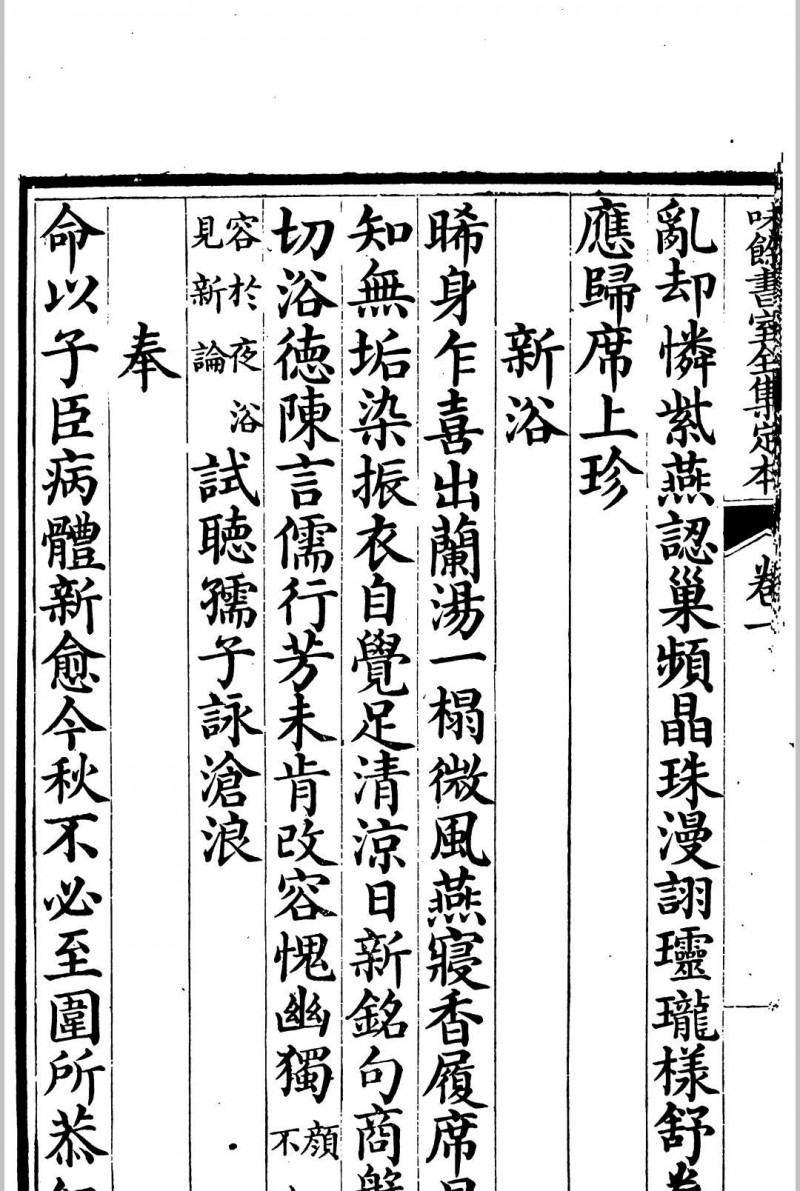 味餘書室全集定本 卷一
亂却憐紫燕認巢頻晶珠漫詡瓏瓏樣舒卷
應歸席上珍
新浴
晞身乍喜出蘭湯一榻微風燕寢香履席
知無垢染振衣自覺足清涼日新銘句商盤
切浴德陳言儒行芳未肯改容愧幽獨顏
不
容於夜浴
見新論
試聽孺子詠滄浪
奉
命以子臣病體新愈今秋不必至圍所恭